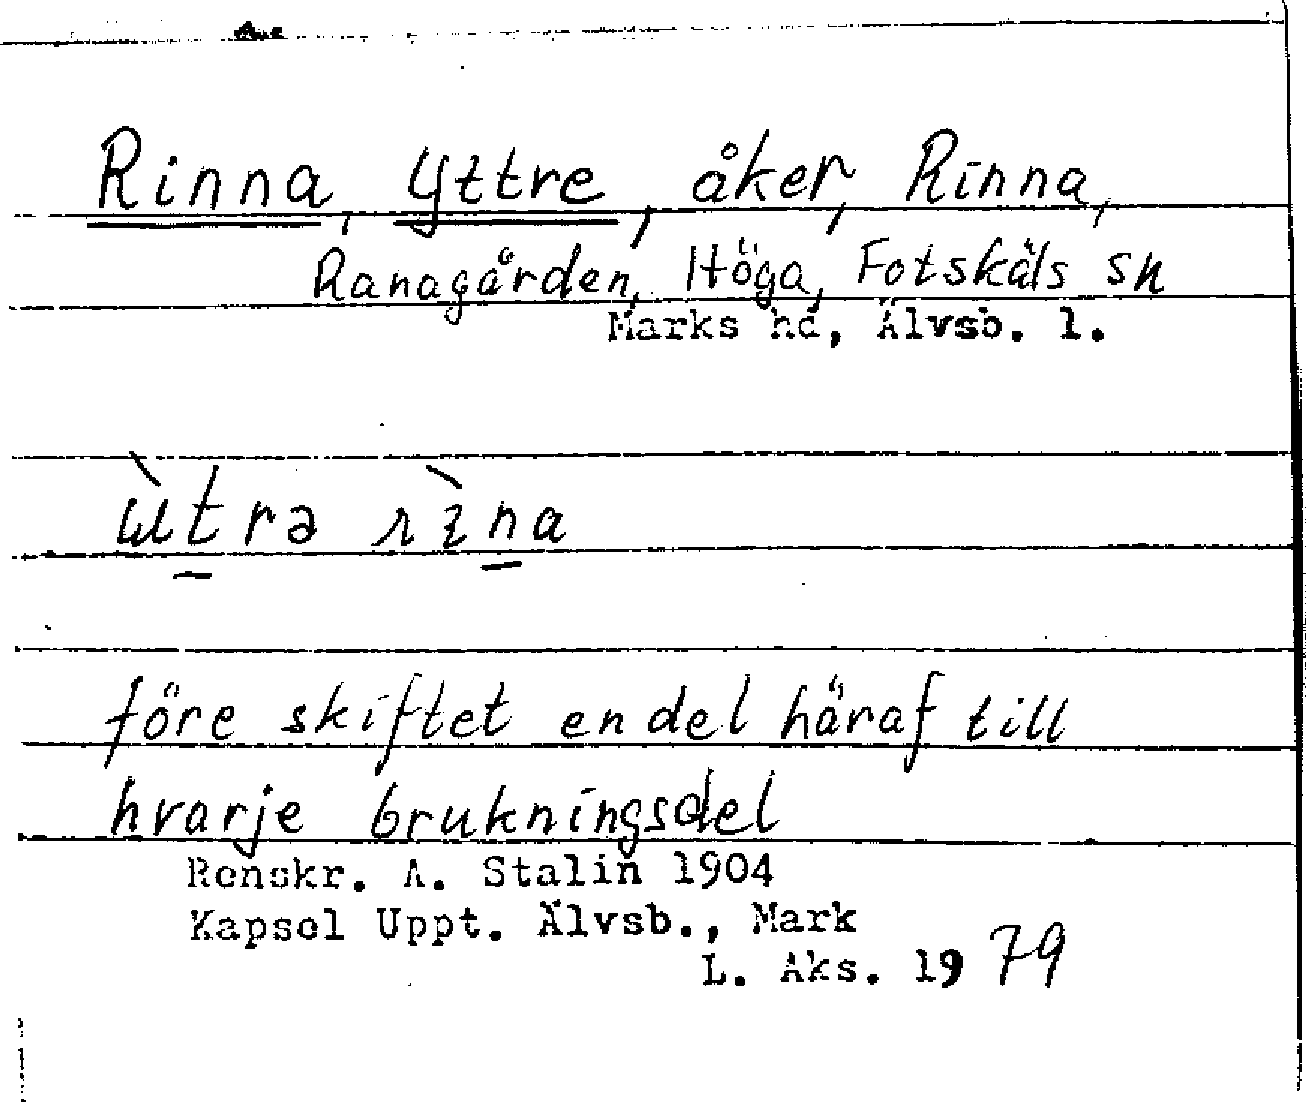 Rinna, Yttre, åker, Rinna,
Ranagården, Höga, Fotskäls sn
Marks hd, Älvsb. l.
ùtrə rìna
före skiftet en del häraf till
hvarje brukningsdel
Renskr. A. Stalin 1904
Kapsel Uppt. Älvsb., Mark
L. Aks. 1979